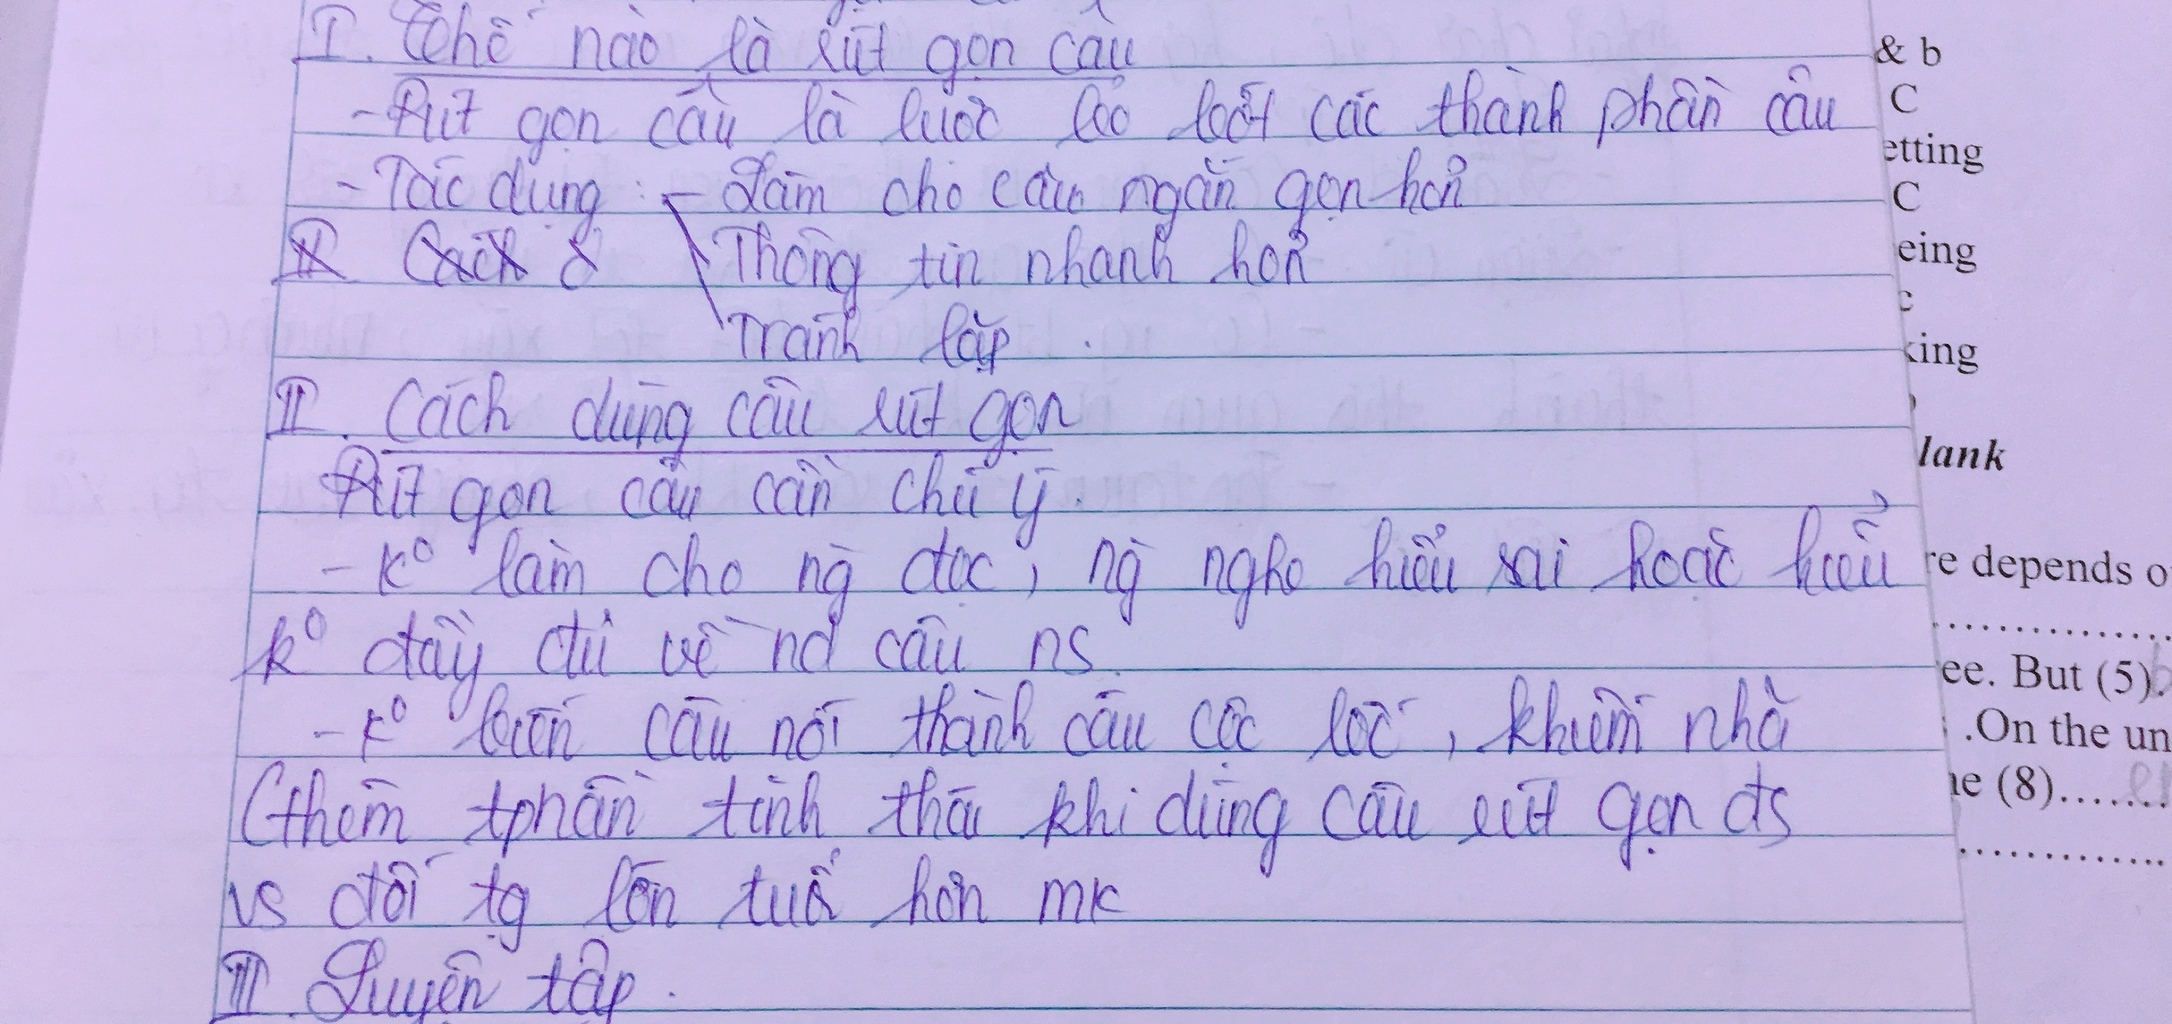 I. Thế nào là rút gọn câu
- Rút gọn câu là lược bỏ bớt các thành phần câu
- Tác dụng : - Làm cho câu ngắn gọn hơn
II Cách ở
Thông tin nhanh hơn
Tránh lặp .
II. Cách dùng câu rút gọn
Rút gọn câu cần chú ý.
- K° làm cho ng đọc, ng nghe hiểu sai hoặc hiểu
k° đầy đủ về nd câu ns
- K° biến câu nói thành câu cộc lốc, khiếm nhã
(thêm tphần tình thái khi dùng câu rút gọn đs
vs đối tg lớn tuổi hơn mk
III. Luyện tập.
& b
C
etting
C
eing
c
king
lank
re depends o
...............
ee. But (5).
.On the un
ne (8).......
..............